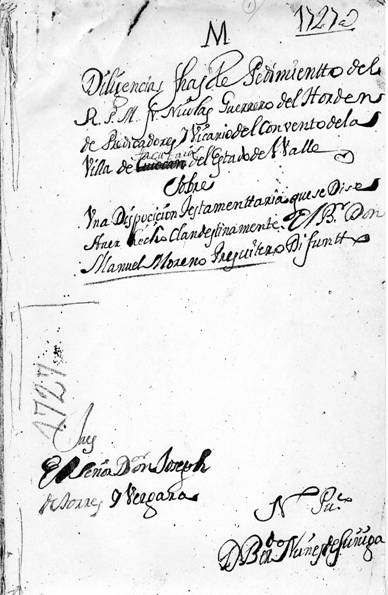 1727a
M
Diligencias fhas de Pedimientto del
R. P. M. fr. Nicolas Guerrero del Horden
de Predicadores, y Vicario del Convento de la
Villa de Cuiocan del Estado de l Valle
Sobre
Una Disposicion Testamenttaria que se Dise
Aver hecho Clandestinamente. El Br. Don
Manuel Moreno Presvitero Difuntto
1727
Jues
El Señor Don Joseph
de Torres y Vergara
No. Puco.
D. Bdo. Nuñes de Suñiga